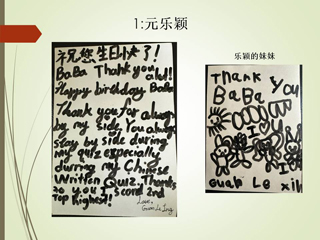 1:元乐颖
祝您生日快了!
BaBa Thank you alot!
Happy birthday BaBa
Thank you for always
by my side. You always
stay by side during
my quiz especially
during my Chinese
Written Quiz. Thanks
to you I scored 2nd
Top highest!!
Love,
乐颖的妹妹
Thank You
BaBa
I
I